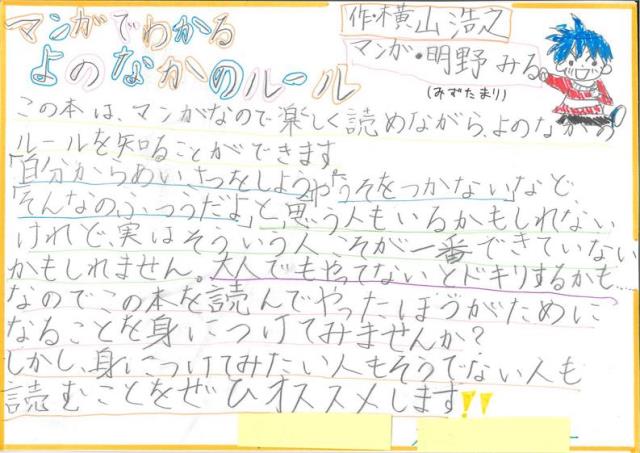 マンガでわかる
よのなかのルール
作・横山浩之
マンガ・明野みる
(みずたまり)
この本は、マンガなので楽しく読めながら、よのなかの
ルールを知ることができます
「自分からあいさつをしよう」や「うそをつかない」など、
「そんなのふつうだよ」と思う人もいるかもしれない
けれど、実はそういう人こそが一番できていない
かもしれません。大人でもやってないとドキリするかも…
なのでこの本を読んでやったほうがために
なることを身につけてみませんか?
しかし、身につけてみたい人もそうでない人も
読むことをぜひオススメします!!